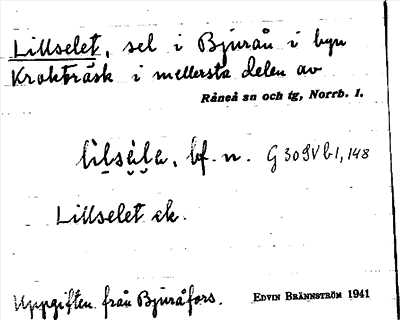 Lillselet, sel i Bjurån i byn
Krokträsk i mellersta delen av
Råneå sn och tg, Norrb. l.
lìlsẹ̀lạ, bf. n. G 309V b 1, 148
Lillselet ek.
Uppgiften från Bjuråfors.
EDVIN BRÄNNSTRÖM 1941